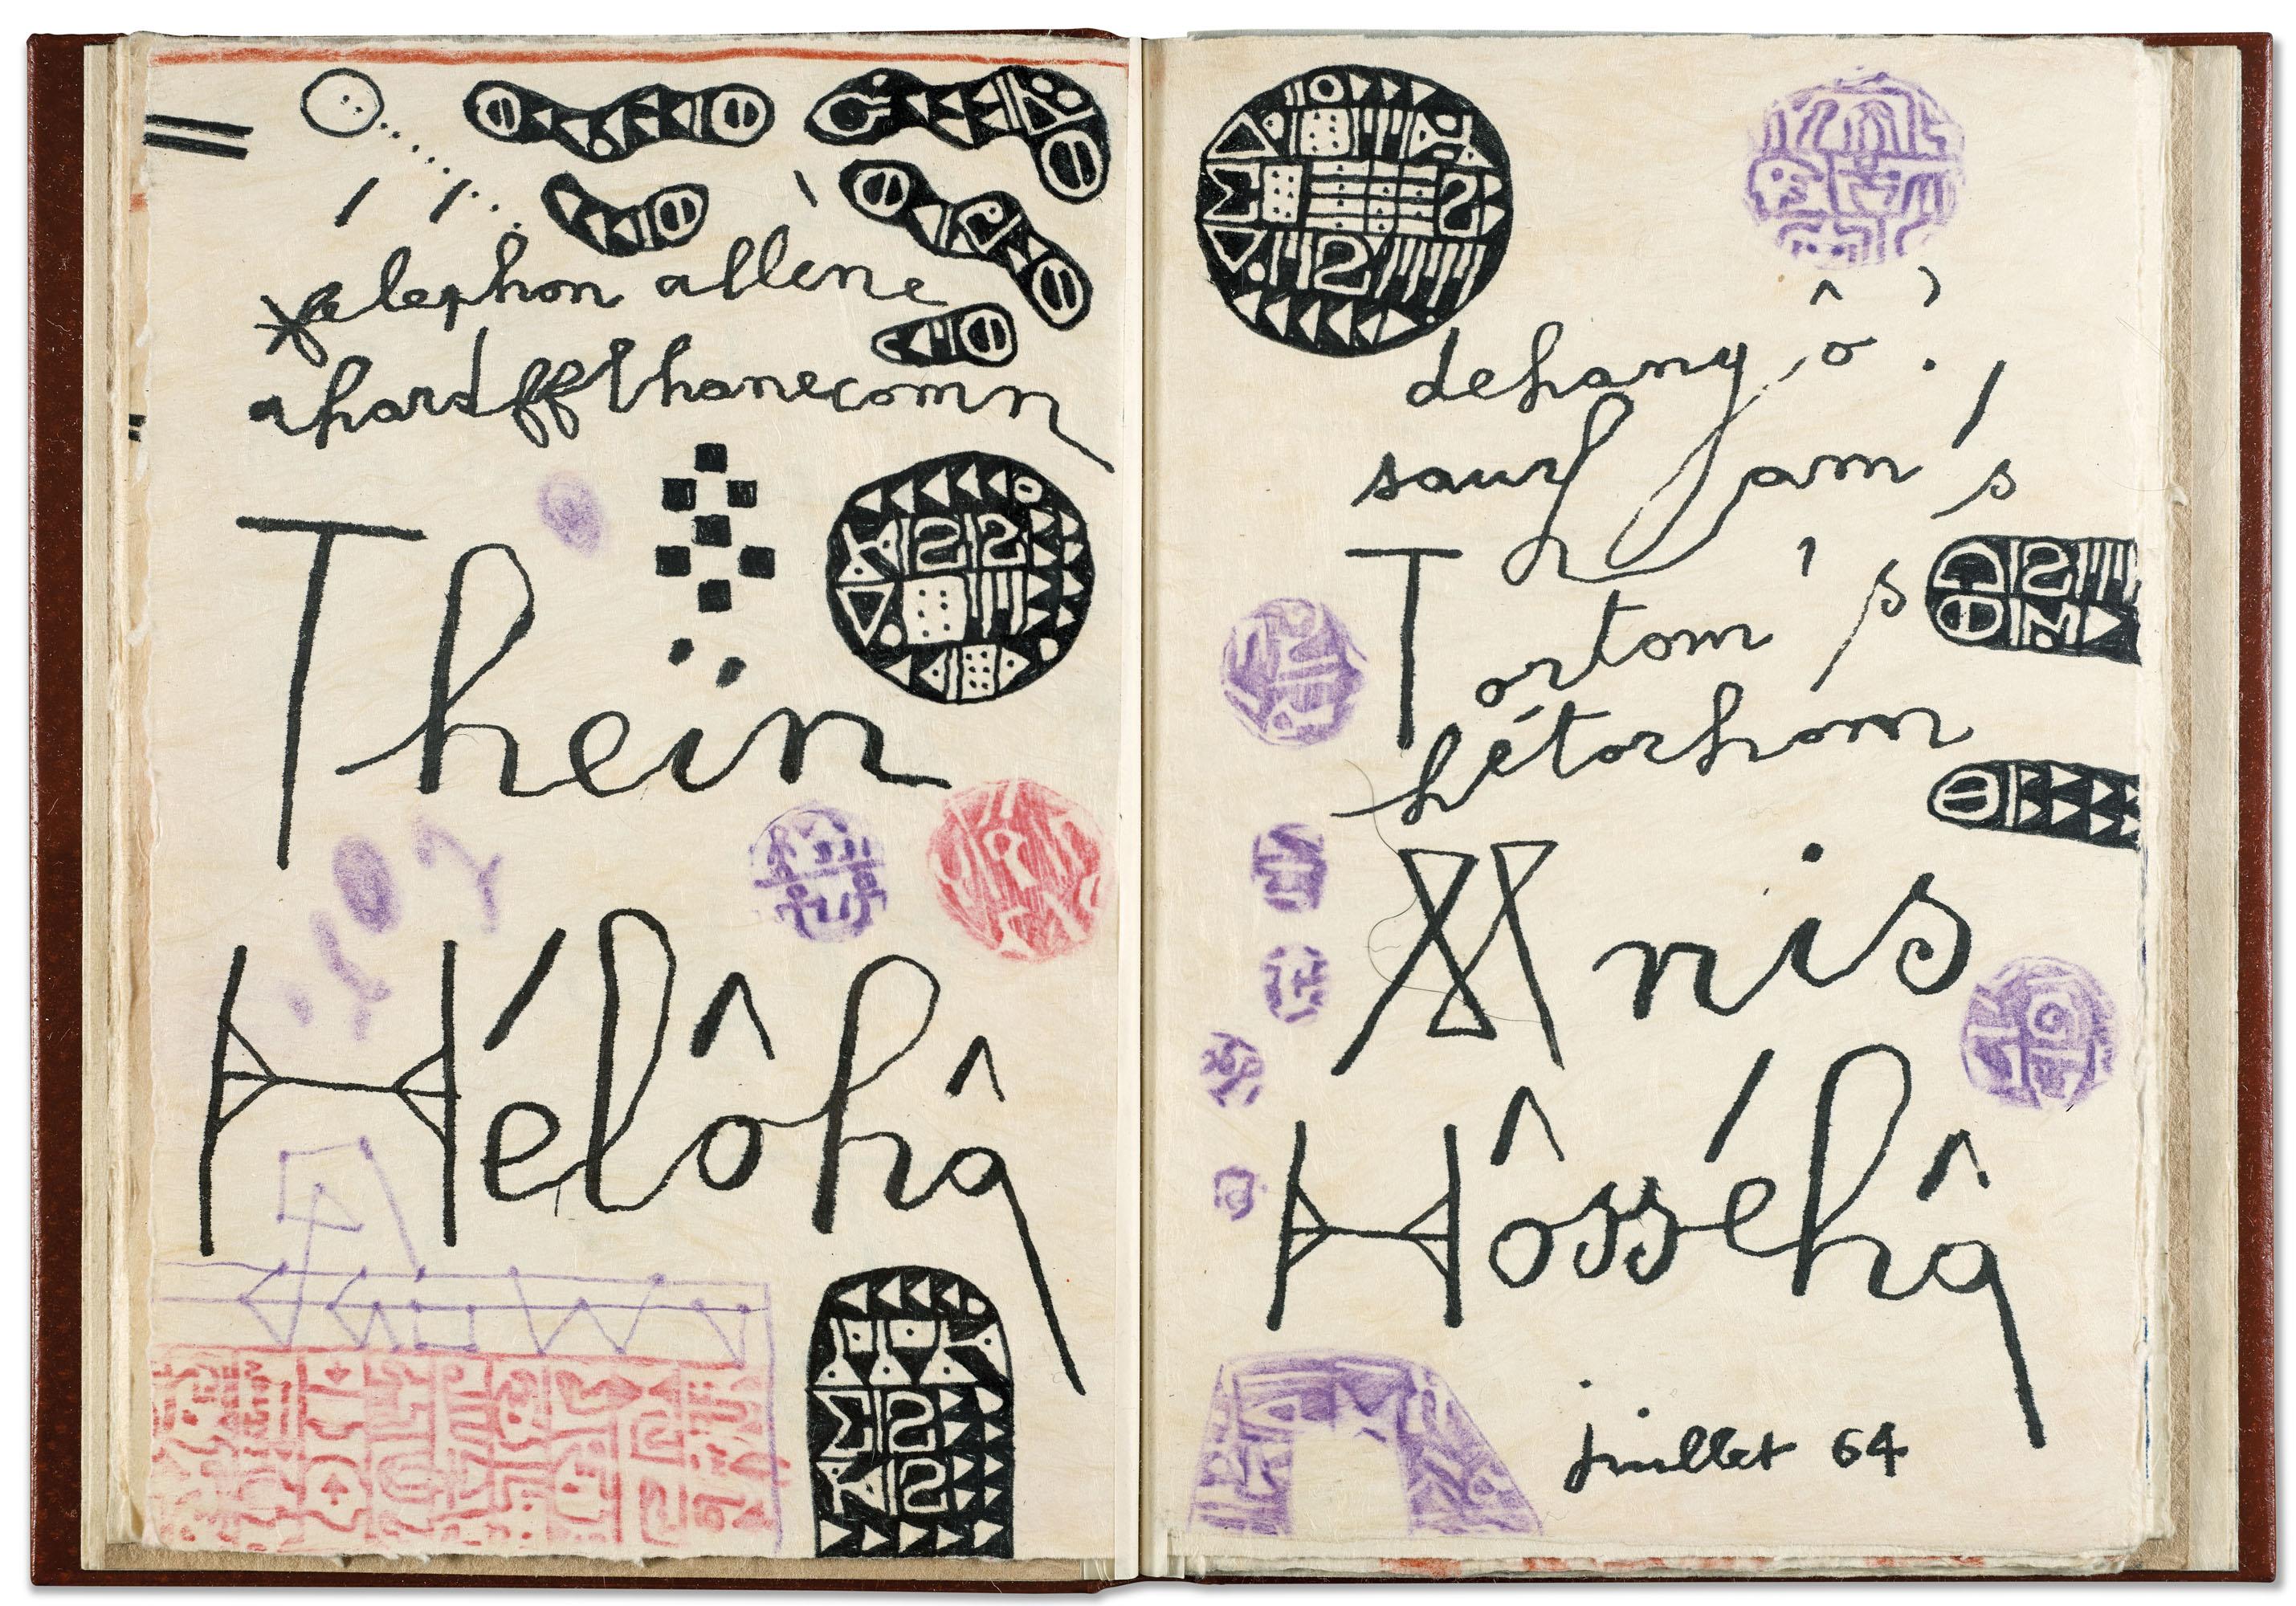 alephon allène
ahardffthanecomn
Thein
Hélôhâ
dehang ô ?
saurf jam's
Tortom's
hétorhom
Mnis
Hôsséhâ
juillet 64